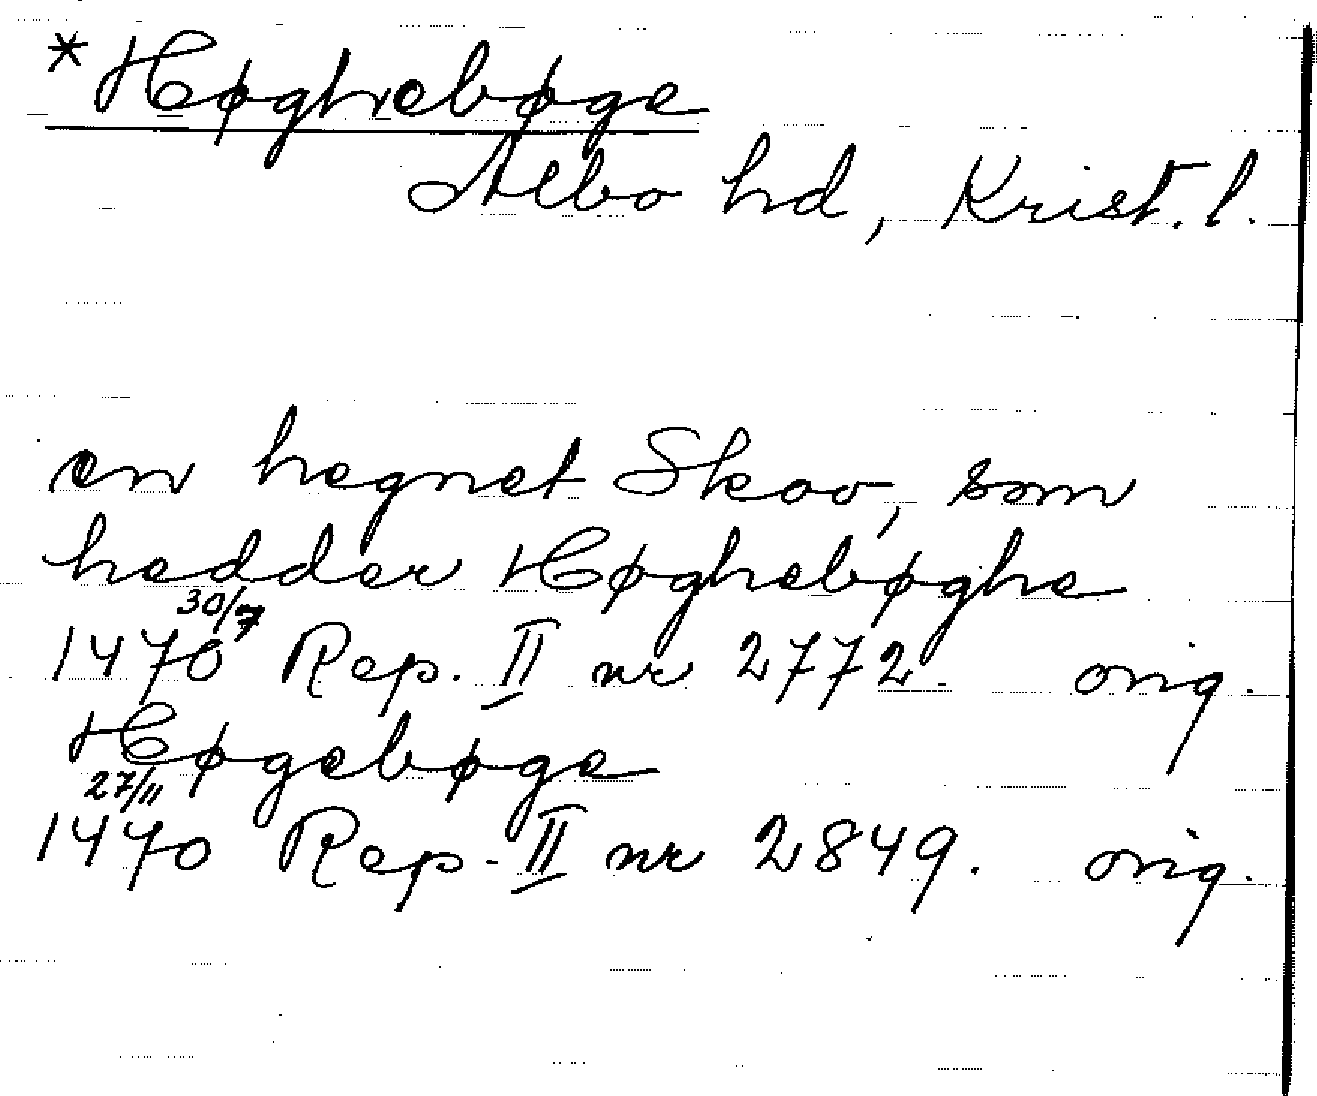 *Høghebøge
Albo hd, Krist. l.
en hegnet Skov, som
hedder Høghebøghe
30/7
1470 Rep. II nr 2772. orig.
Høgebøge
27/11
1470 Rep. II nr 2849. orig.